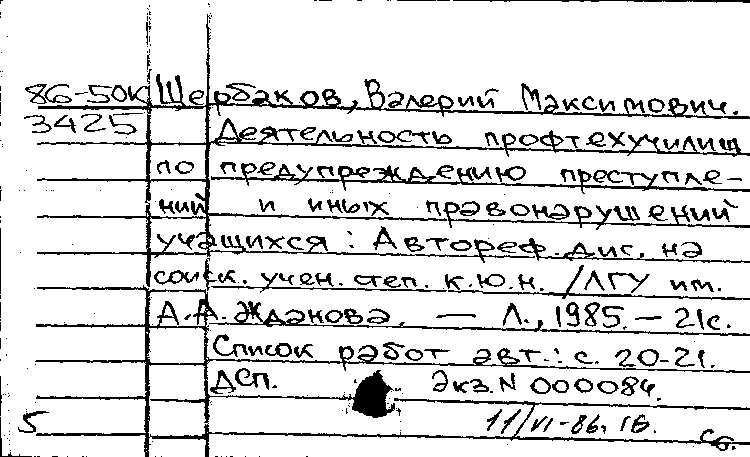 86-50К Щербаков, Валерий Максимович.
3425 Деятельность профтехучилищ
по предупреждению преступле-
ний и иных правонарушений
учащихся: Автореф. дис. на
соиск. учен. степ. к.ю.н. /ЛГУ им.
А.А. Жданова. — Л., 1985. — 21с.
Список работ авт.: с. 20-21.
ДСП. Экз. N 000084.
5 11/VI-86.